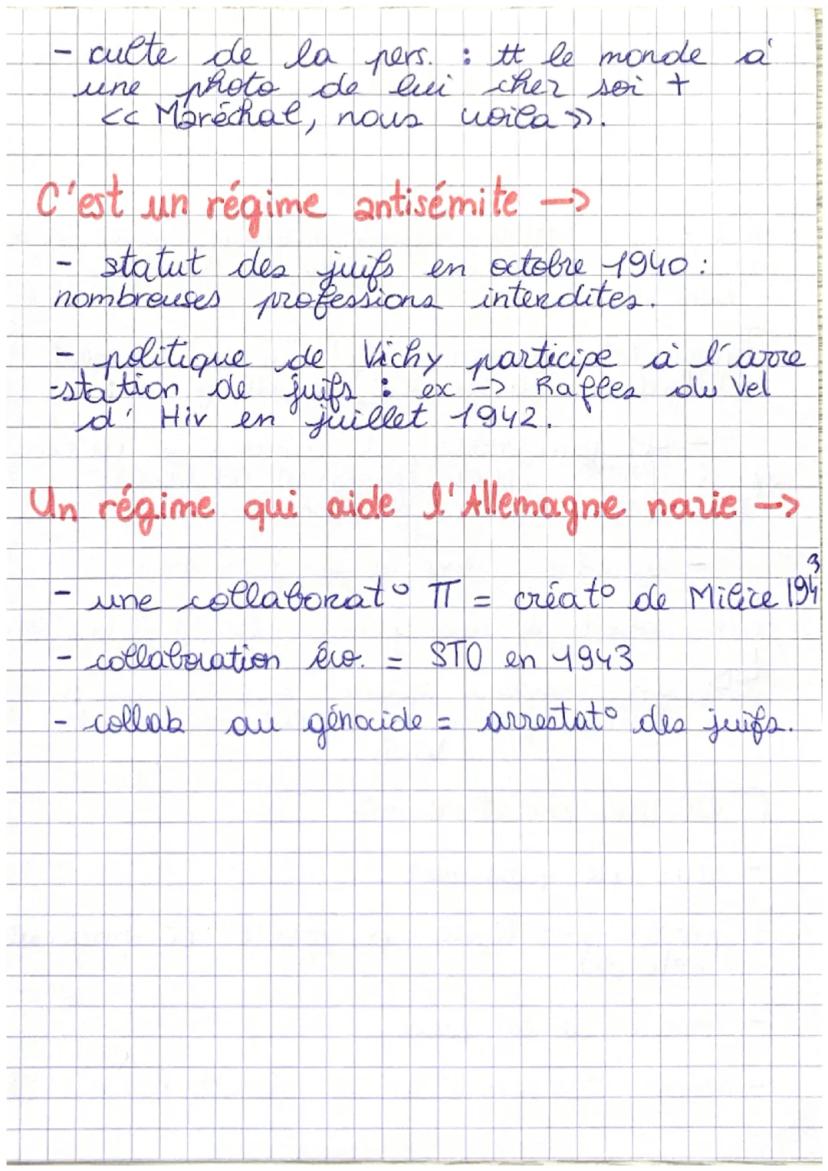 - culte de la pers. : tt le monde à
une photo de lui chez soi +
<< Maréchal, nous voila >>.
C'est un régime antisémite ->
- statut des juifs en octobre 1940 :
nombreuses professions interdites.
- politique de Vichy participe à l'arre
=station de juifs : ex -> Rafles du Vel
d' Hiv en juillet 1942.
Un régime qui aide l'Allemagne nazie ->
- une collaborat° π = créat° de Milice 1943
- collaboration éco. = STO en 1943
- collab au génocide = arrestat° des juifs.